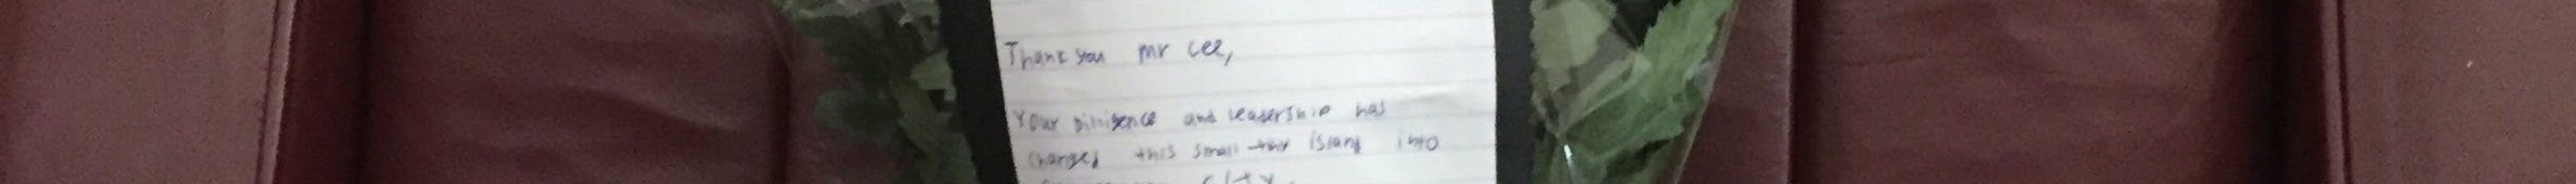 Thank you Mr Lee,
Your diligence and leadership has
changed this small tiny island into
city.